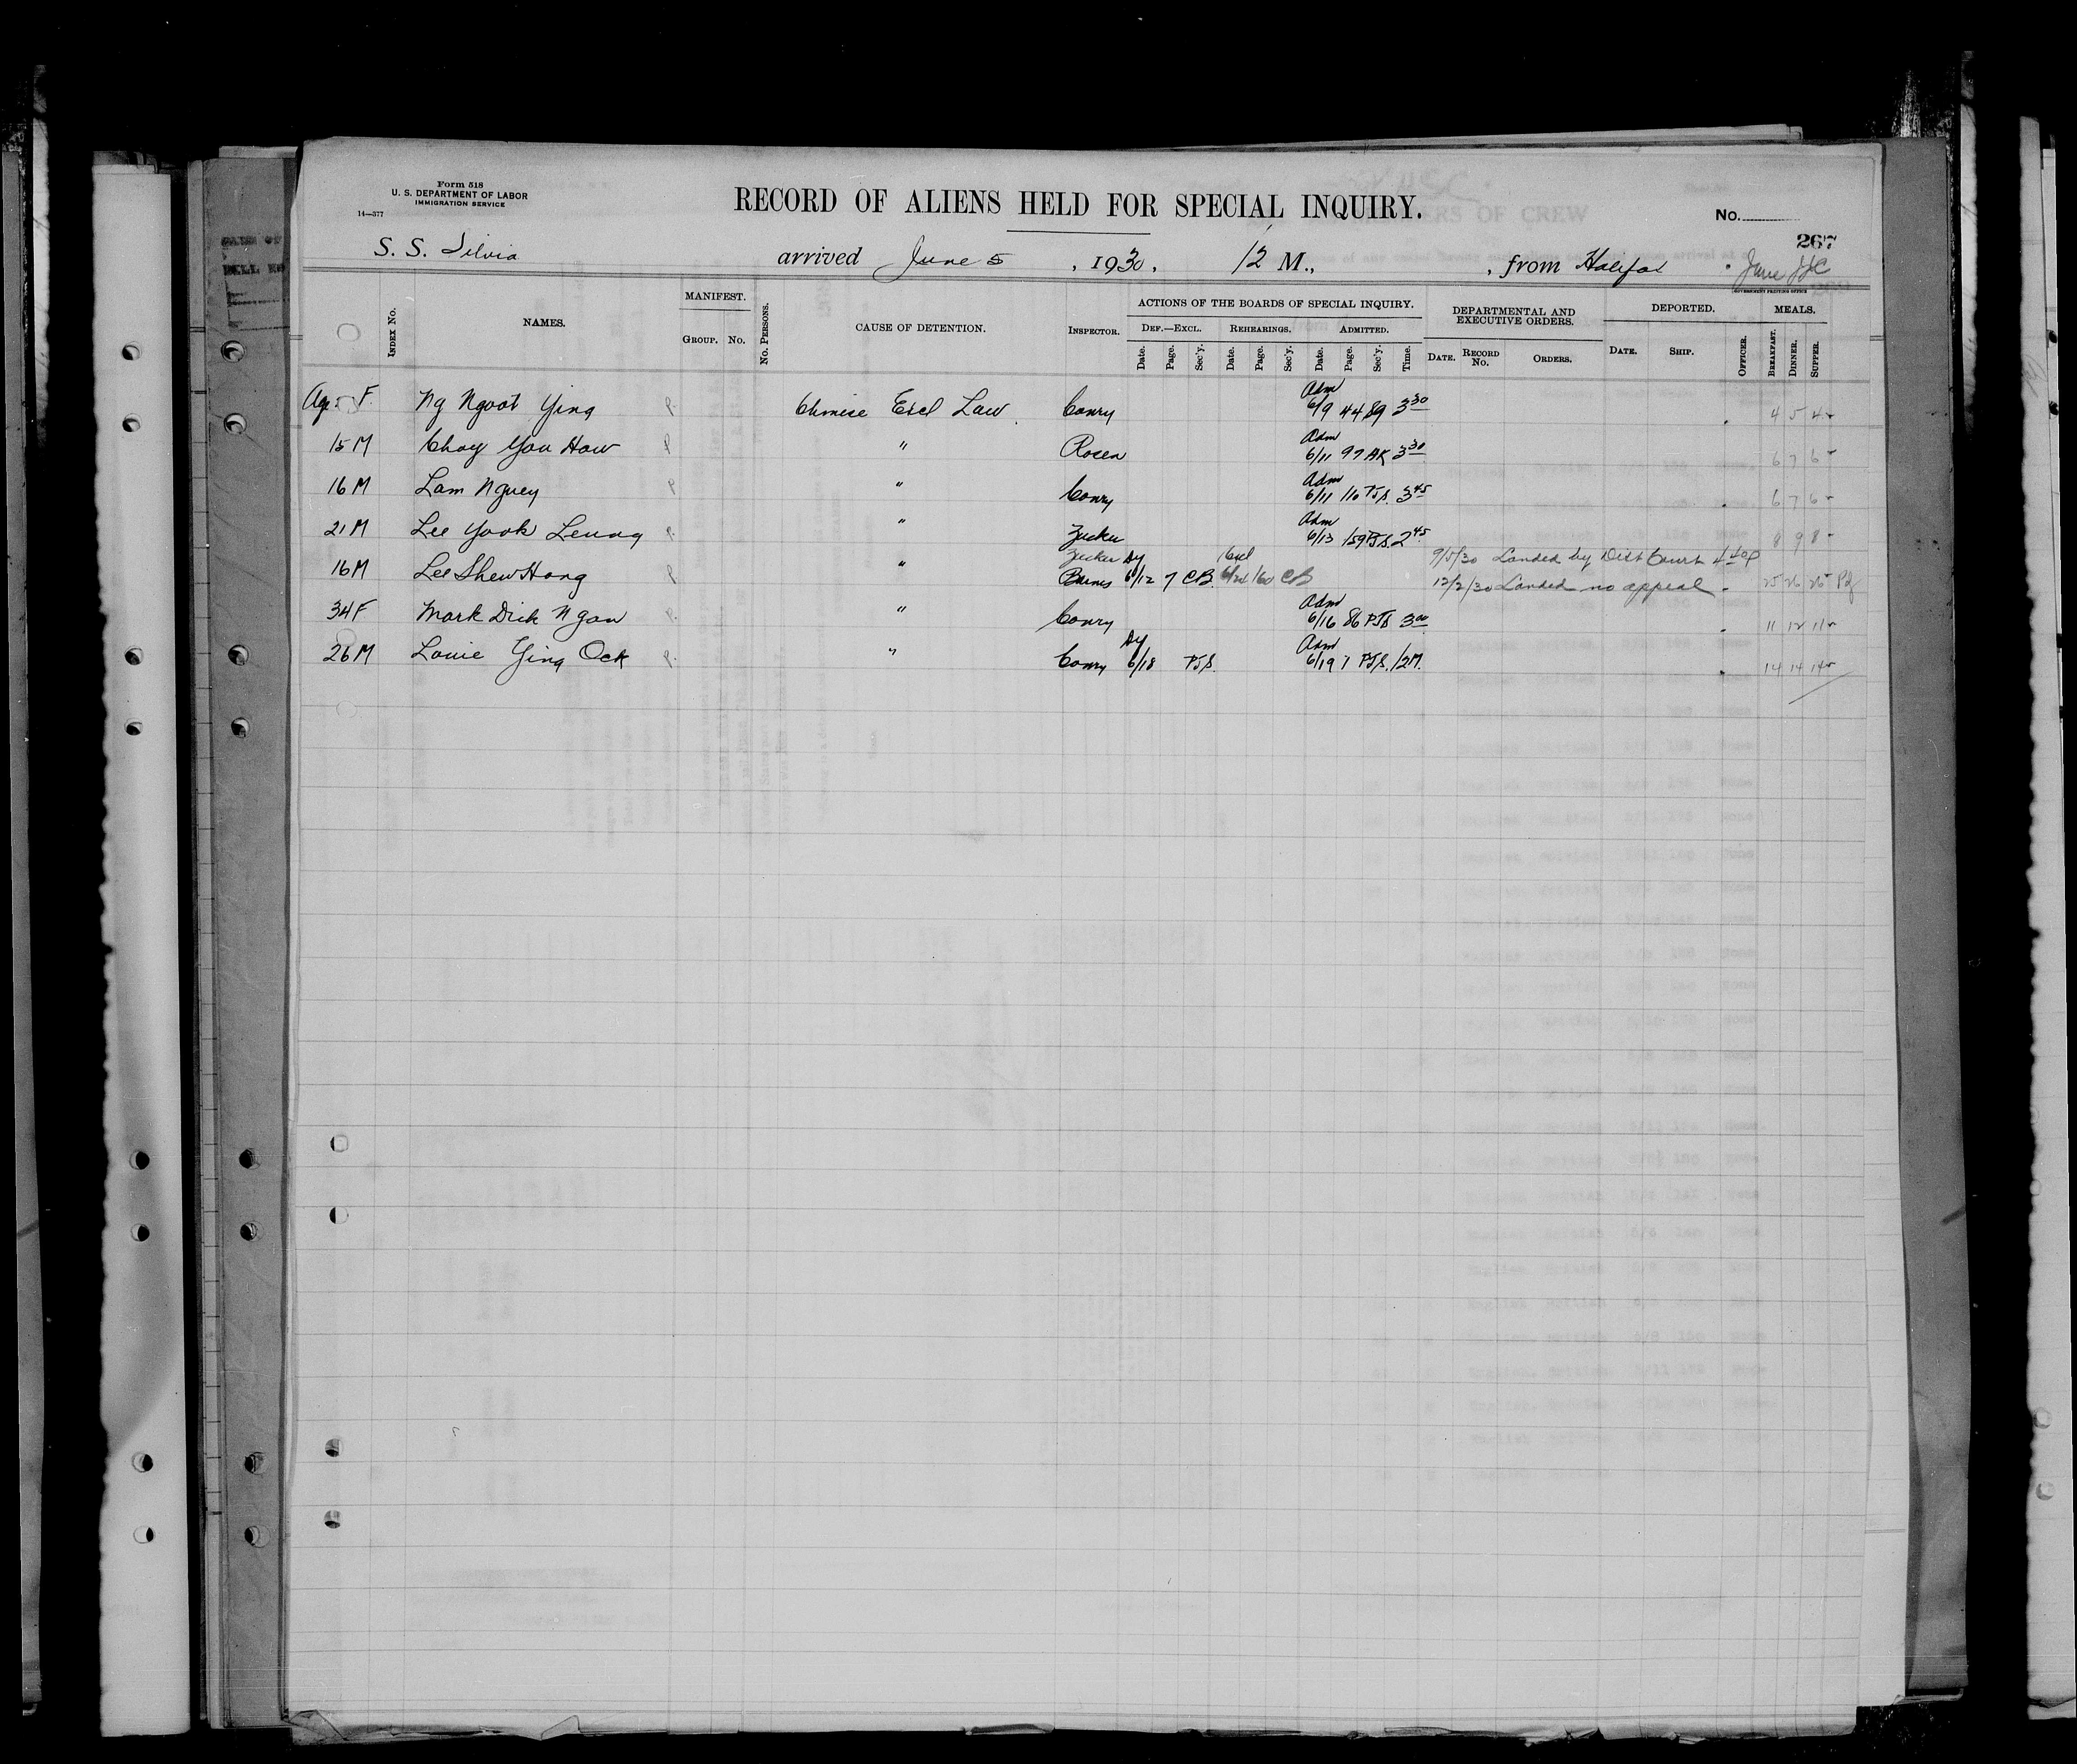 Form 518
U. S. DEPARTMENT OF LABOR
IMMIGRATION SERVICE
14—577
RECORD OF ALIENS HELD FOR SPECIAL INQUIRY.
No.
267
S. S. Silvia arrived June 5, 1930, 12 M., from Halifax
MANIFEST. ACTIONS OF THE BOARDS OF SPECIAL INQUIRY. DEPARTMENTAL AND EXECUTIVE ORDERS. DEPORTED. MEALS.
INDEX No. NAMES. GROUP. No. No. PERSONS. CAUSE OF DETENTION. INSPECTOR. DEF.—EXCL. REHEARINGS. ADMITTED.
Date. Page. Sec'y. Date. Page. Sec'y. Date. Page. Sec'y. Time. DATE. RECORD No. ORDERS. DATE. SHIP. OFFICER. BREAKFAST. DINNER. SUPPER.
GOVERNMENT PRINTING OFFICE
Age F. Ng Ngoot Ying Chinese Excl Law. Conry Adm 6/9 44 3 30 4 5 4
15 M Choy You How " Rosen Adm 6/11 97 AK 3 30 6 7 6
16 M Lam Nguey " Conry Adm 6/11 110 PJS. 3 45 6 7 6
21 M Lee Yook Leung " Zucker Adm 6/13 159 PJS. 2 45 8 9 8
Zucker Df Excl 9/5/30 Landed by Dist Court
16 M Lee Shew Hong " Barnes 6/12 7 CB. 160 CB 12/2/30 Landed no appeal 25 26 26
34 F Mark Dick Ngan " Conry Adm 6/16 86 PJS 3 00 11 12 11
26 M Louie Ying Ock " Conry Df 6/18 PJS. Adm 6/19 7 PJS. 12 M. 14 14 14